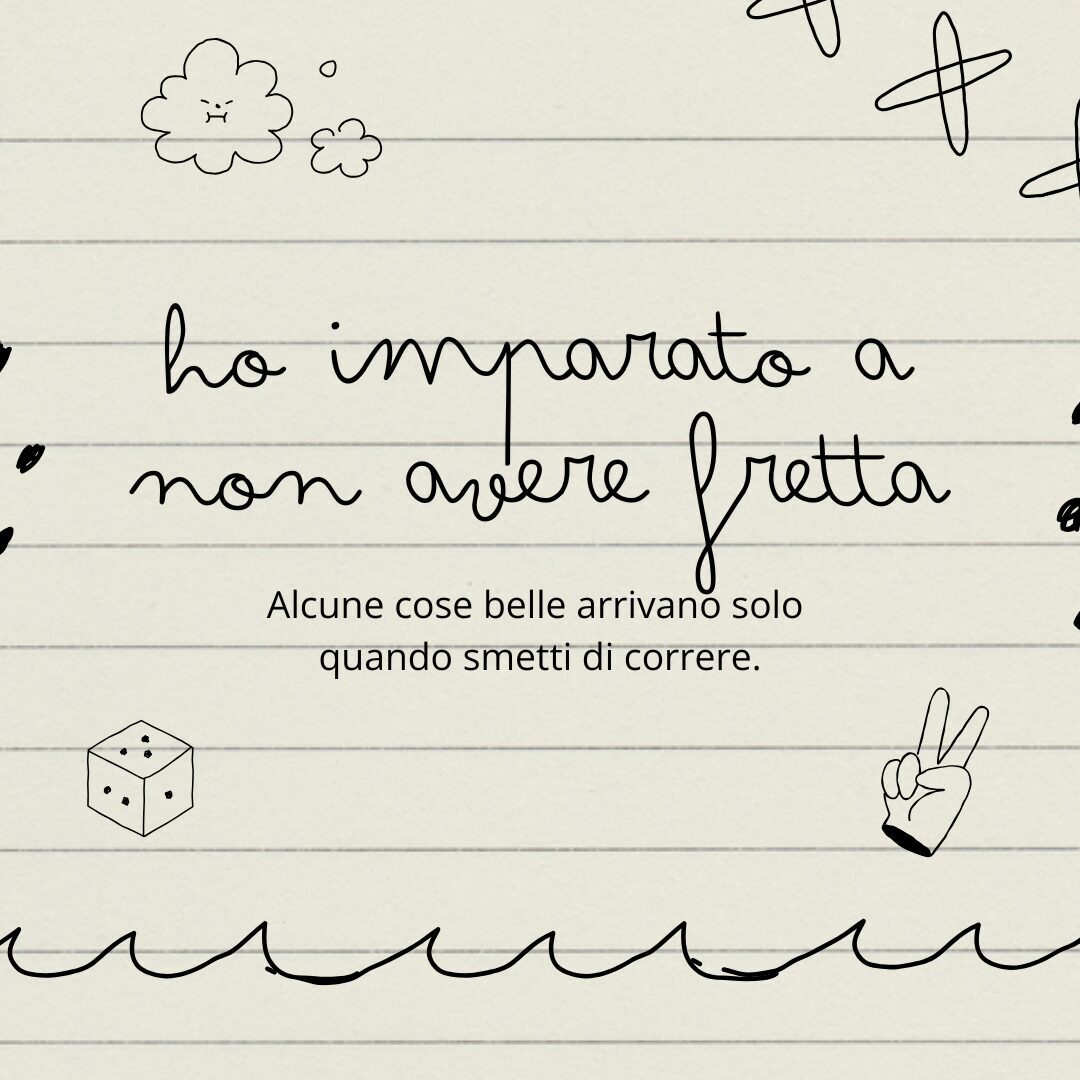 ho imparato a
non avere fretta
Alcune cose belle arrivano solo
quando smetti di correre.